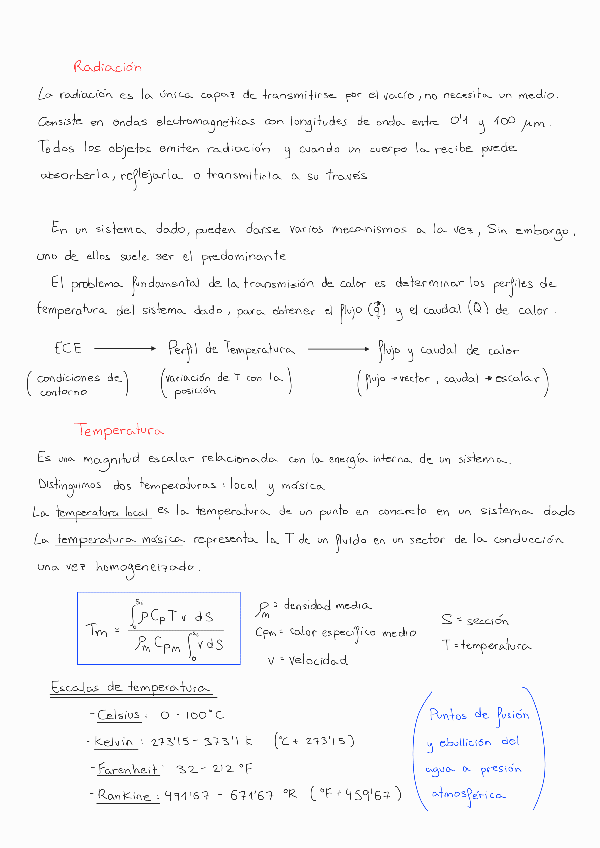 Radiación
La radiación es la única capaz de transmitirse por el vacío, no necesita un medio.
Consiste en ondas electromagnéticas con longitudes de onda entre 0'1 y 100 μm.
Todos los objetos emiten radiación y cuando un cuerpo la recibe puede
absorberla, reflejarla o transmitirla a su través
En un sistema dado, pueden darse varios mecanismos a la vez, Sin embargo,
uno de ellos suele ser el predominante
El problema fundamental de la transmisión de calor es determinar los perfiles de
temperatura del sistema dado, para obtener el flujo (q⃗) y el caudal (Q) de calor.
ECE → Perfil de Temperatura → flujo y caudal de calor
(condiciones de contorno) (variación de T con la posición) (flujo → vector, caudal → escalar)
Temperatura
Es una magnitud escalar relacionada con la energía interna de un sistema.
Distinguimos dos temperaturas: local y másica
La temperatura local es la temperatura de un punto en concreto en un sistema dado
La temperatura másica representa la T de un fluido en un sector de la conducción
una vez homogeneizado.
Tm = ∫₀^S₀ ρ Cp T v dS / ρm Cpm ∫₀^S₀ v dS
ρm = densidad media
Cpm = calor específico medio
v = velocidad
S = sección
T = temperatura
Escalas de temperatura
- Celsius: 0 - 100°C
- Kelvin: 273'15 - 373'1 k (°C + 273'15)
- Farenheit: 32 - 212 °F
- Rankine: 491'67 - 671'67 °R (°F + 459'67)
(Puntos de fusión
y ebullición del
agua a presión
atmosférica)